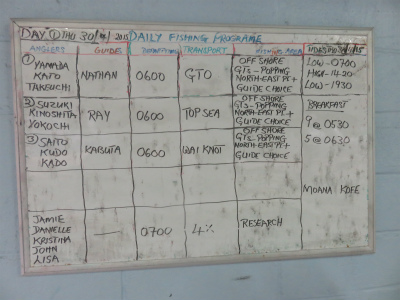 DAY 1 THU 30/ /2015 DAILY FISHING PROGRAME
ANGLERS GUIDE TRANSPORT FISHING AREA
① YAMADA
KATO
TAKEUCHI
NATHAN
0600
GTO
OFF SHORE
GTs - POPPING
NORTH EAST PT +
GUIDE CHOICE
LOW - 0700
HIGH - 1420
LOW - 1930
② SUZUKI
KINOSHITA
YOKOCHI
RAY
0600
TOP SEA
OFF SHORE
GTs - POPPING
NORTH EAST PT +
GUIDE CHOICE
BREAKFAST
9 @ 0530
5 @ 0630
③ SAITO
KUDO
KADO
KABUTA
0600
WAI KNOT
OFF SHORE
GTs POPPING
NORTH EAST PT +
GUIDE CHOICE
MOANA KOFE
JAMIE
DANIELLE
KRISTINA
JOHN
LISA
—
0700
4%
RESEARCH